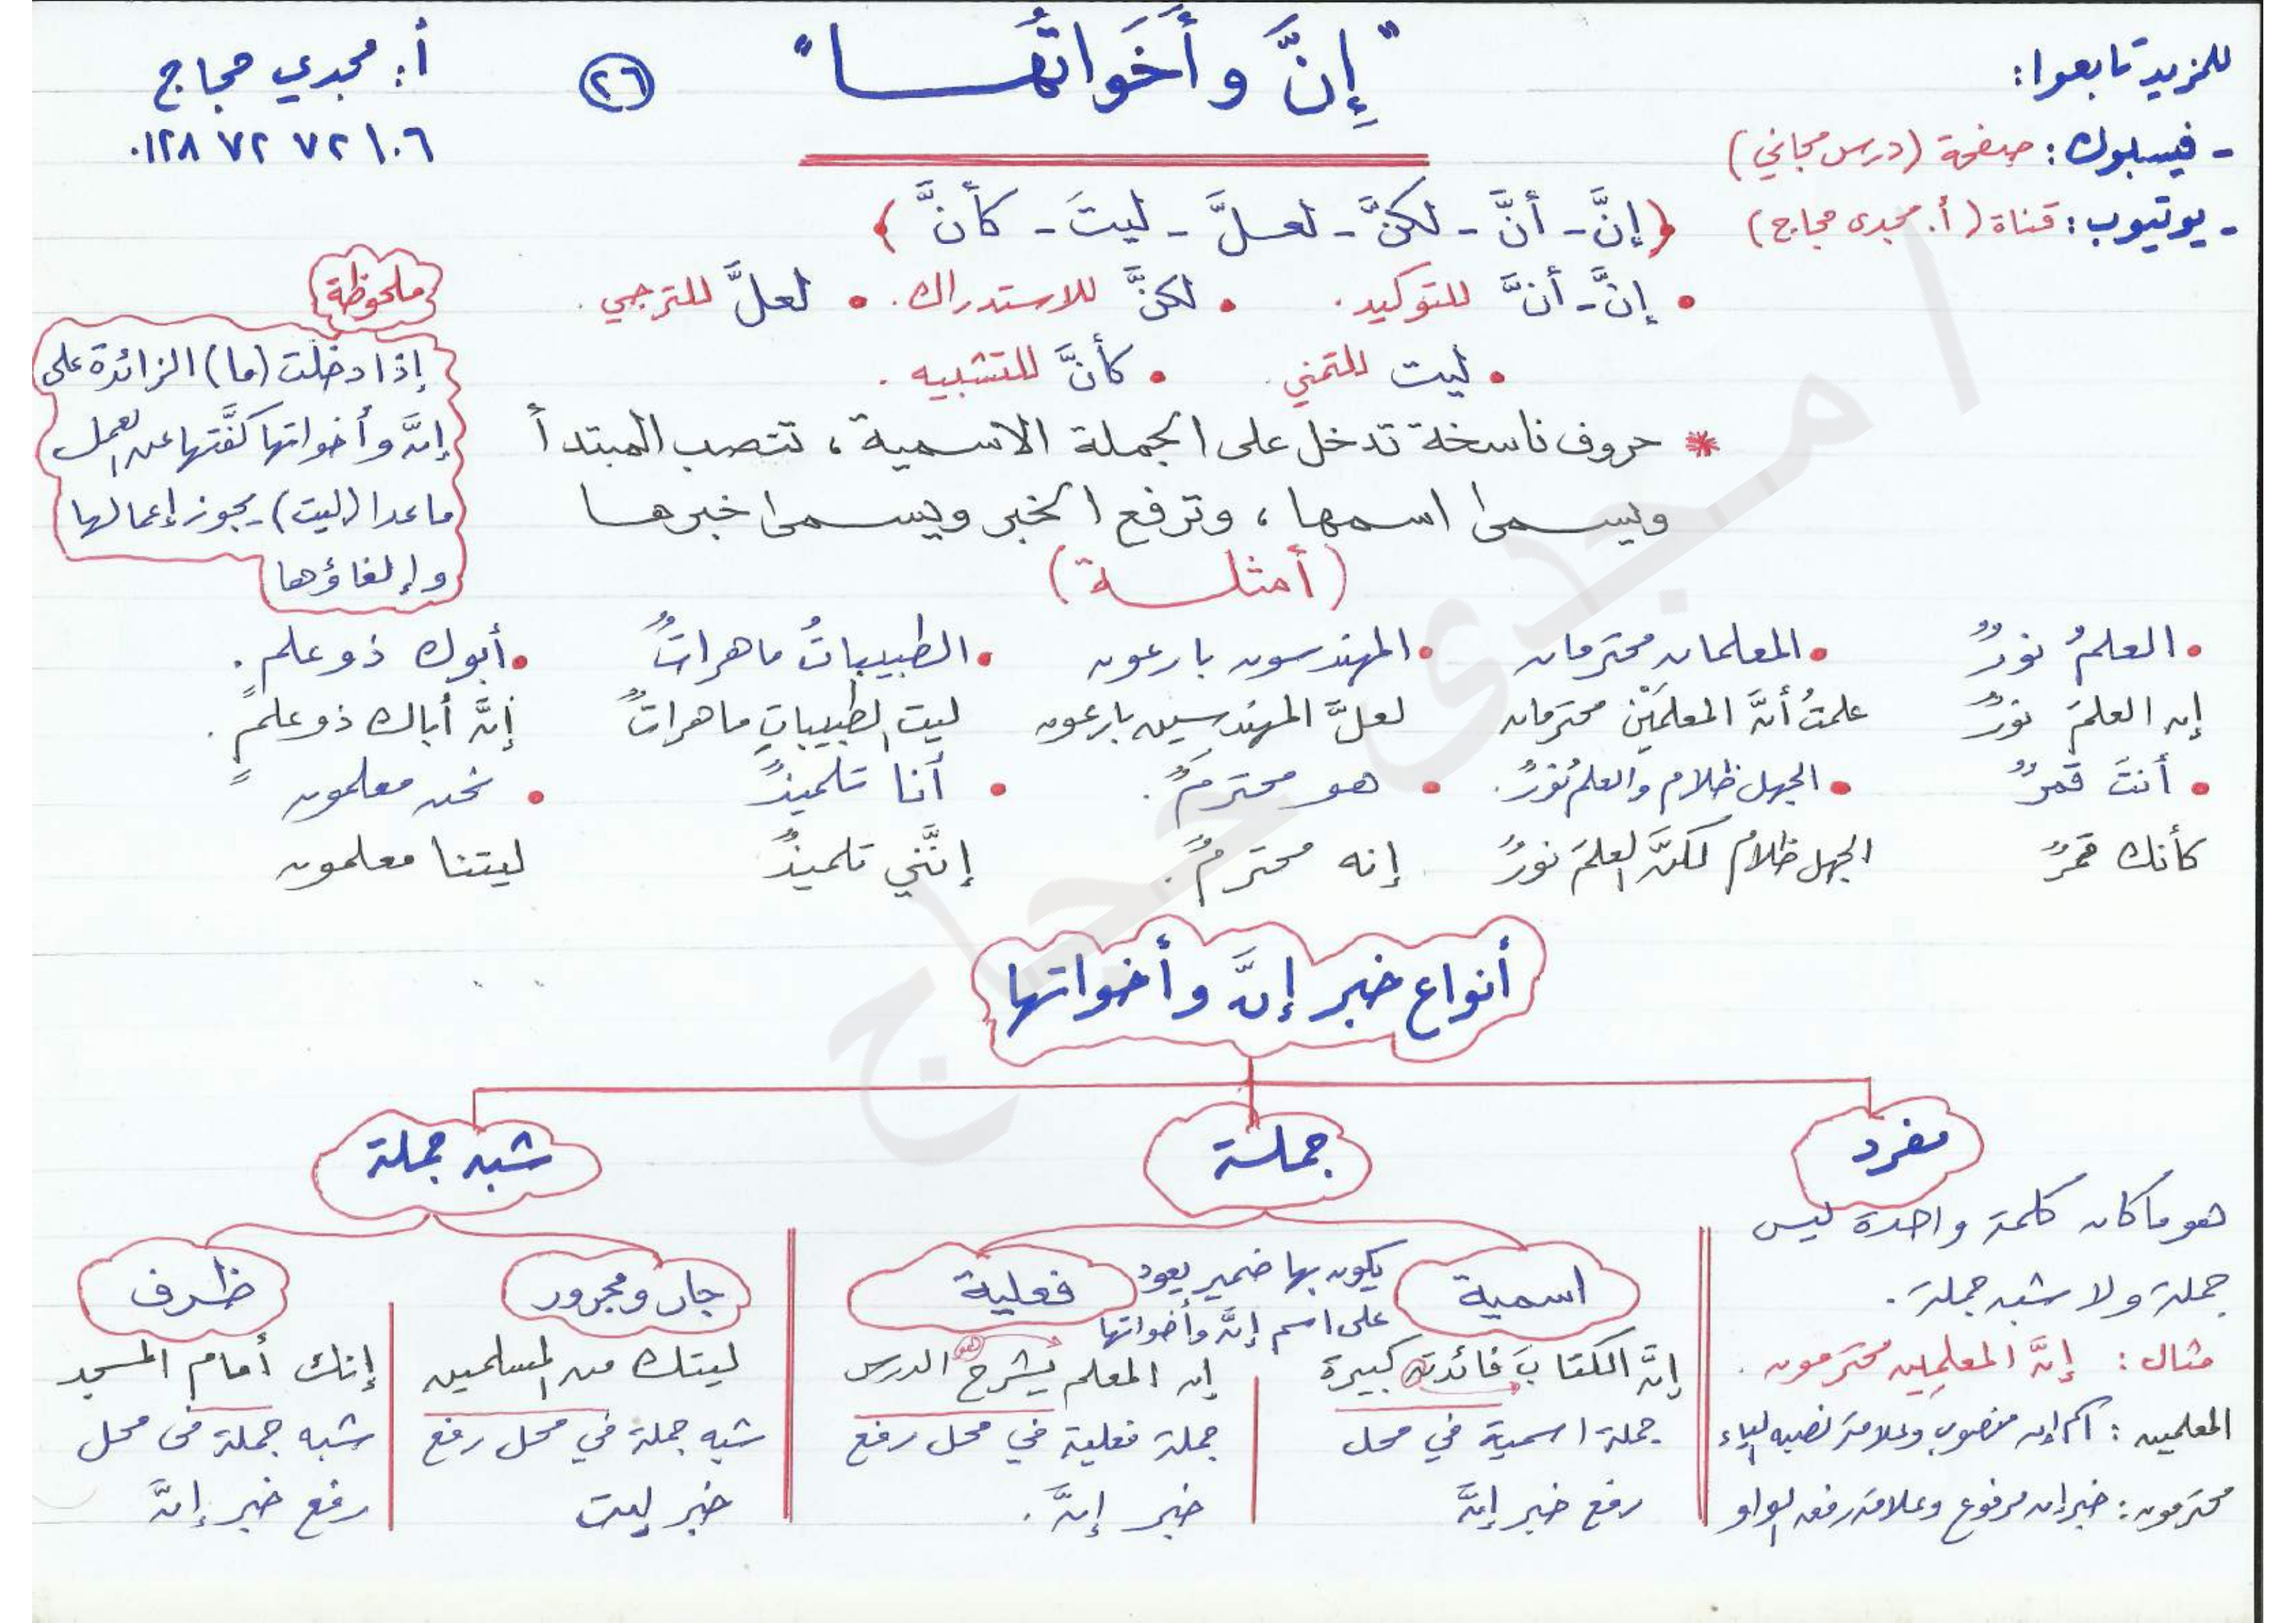 للمزيد تابعوا:
- فيسبوك: صفحة (درس مجاني)
- يوتيوب: قناة (أ. مجدى حجاج)
"إنَّ وأَخَواتُها"
٢٦
أ: مجدي حجاج
٠١٢٨ ٧٢ ٧٢ ١٠٦
{إنَّ - أنَّ - لكنَّ - لعلَّ - ليتَ - كأنَّ}
• إنَّ - أنَّ للتوكيد. • لكنَّ للاستدراك. • لعلَّ للترجي.
• ليت للتمني. • كأنَّ للتشبيه.
* حروف ناسخة تدخل على الجملة الاسمية، تنصب المبتدأ
ويسمى اسمها، وترفع الخبر ويسمى خبرها
ملحوظة
إذا دخلت (ما) الزائدة على
إنَّ وأخواتها كفَّتها عن العمل
ماعدا (ليت) يجوز إعمالها
وإلغاؤها
(أمثلة)
• العلمُ نورٌ • المعلمان محترمان • المهندسون بارعون • الطبيباتُ ماهراتٌ • أبوك ذو علم.
إن العلمَ نورٌ علمتُ أنَّ المعلمَيْن محترمان لعلَّ المهندسين بارعون ليت الطبيباتِ ماهراتٌ إنَّ أباك ذو علمٍ.
• أنتَ قمرٌ • الجهل ظلام والعلمُ نورٌ. • هو محترمٌ. • أنا تلميذٌ • نحن معلمون
كأنك قمرٌ الجهل ظلام لكنَّ العلمَ نورٌ إنه محترمٌ. إنَّني تلميذٌ ليتنا معلمون
أنواع خبر إنَّ وأخواتها
مفرد جملة شبه جملة
هو ما كان كلمة واحدة ليس
جملة ولا شبه جملة.
مثال: إنَّ المعلمين محترمون.
المعلمين: اسم إن منصوب وعلامة نصبه الياء
محترمون: خبر إن مرفوع وعلامة رفعه الواو
اسمية
يكون بها ضمير يعود
على اسم إنَّ وأخواتها
فعلية
إنَّ الكتابَ فائدته كبيرة
جملة اسمية في محل
رفع خبر إنَّ
إن المعلم يشرح الدرس
جملة فعلية في محل رفع
خبر إنَّ.
جار ومجرور
ليتك من المسلمين
شبه جملة في محل رفع
خبر ليت
ظرف
إنك أمام المسجد
شبه جملة فى محل
رفع خبر إنَّ
أ/مجدى حجاج